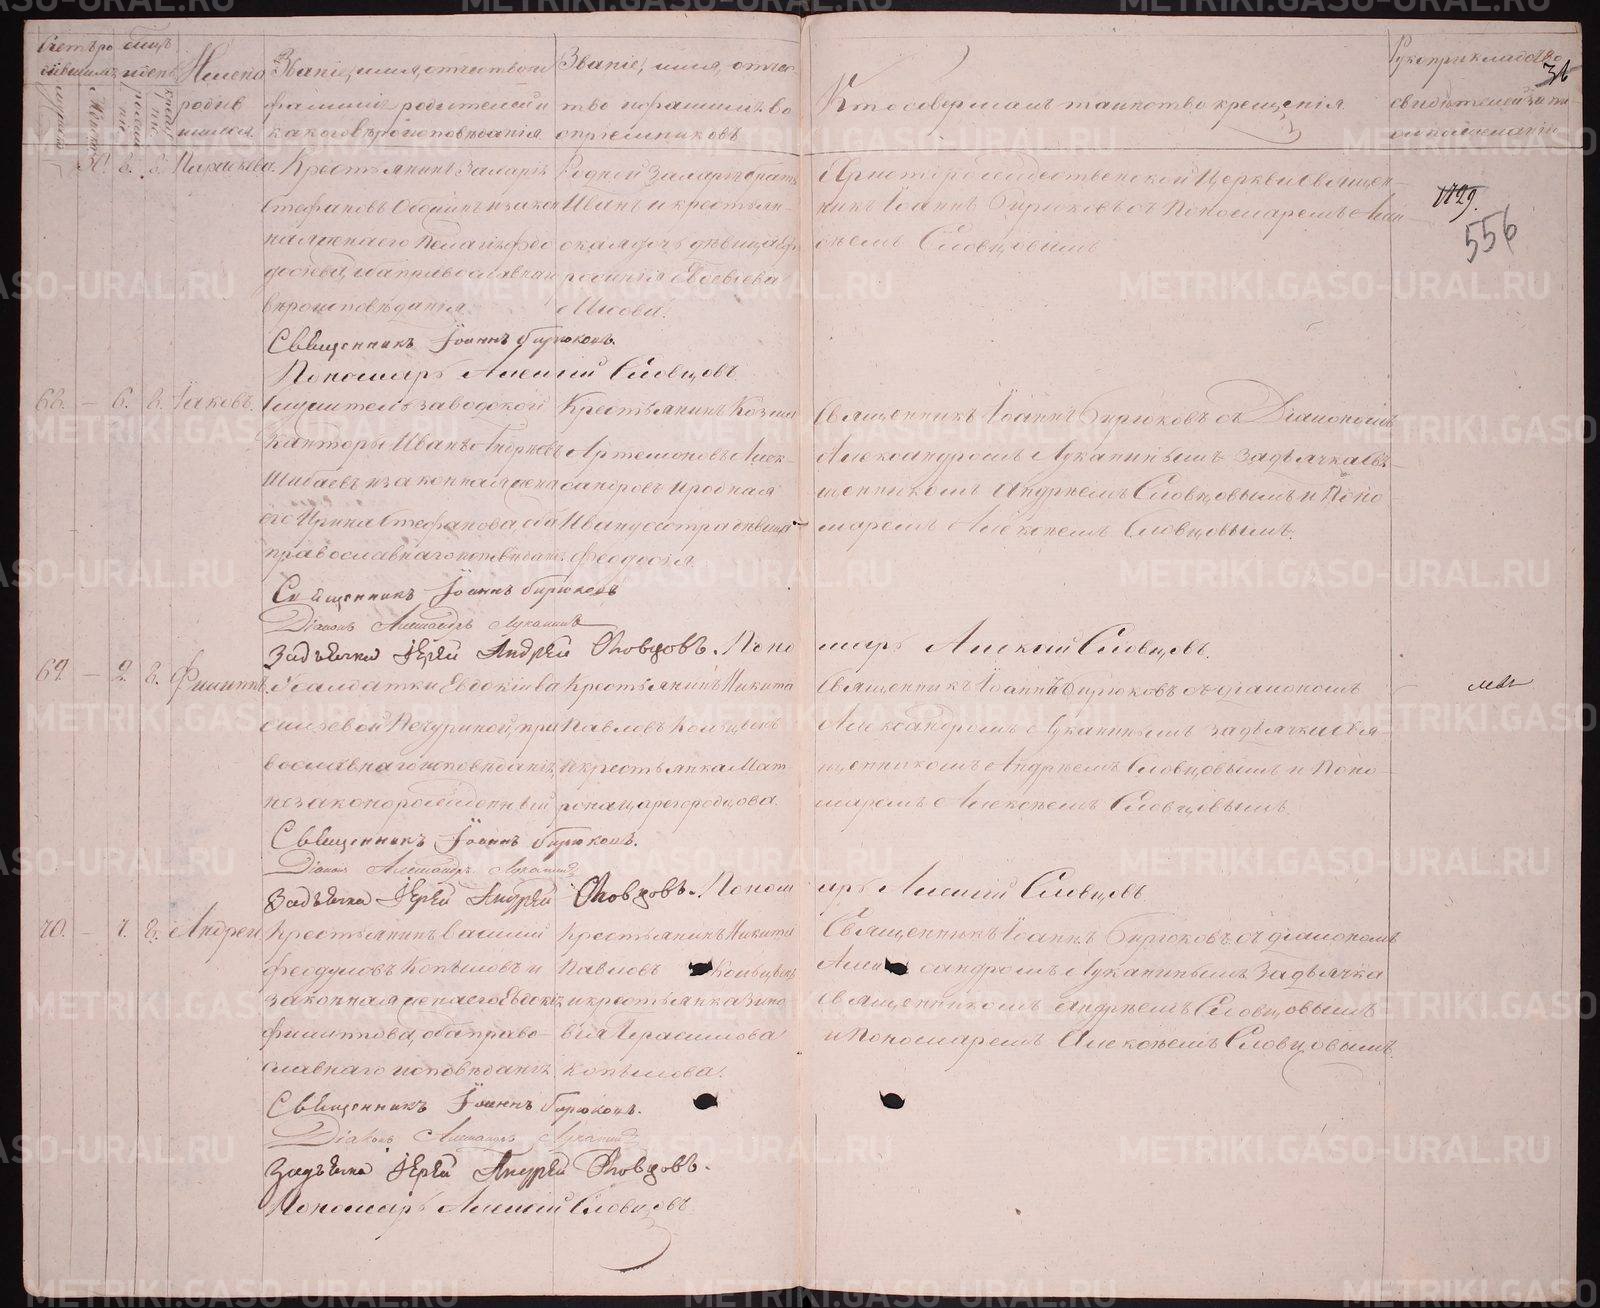 Счетъ ро
дившихся
мѣсяцъ
и день
Имена
родив
шихся
Званіе, имя, отчество и
фамилія родителей и
какого вѣроисповѣданія
Званіе, имя, отче-
ство и фамилія во
спріемниковъ
Кто совершалъ таинство крещенія
Рукоприкладство
свидѣтелей записи
по желанію
36
Параскева.
Крестьянинъ Захарій
Стефановъ и закон
ная жена его Пелагія Ѳео
оба православнаго
вѣроисповѣданія.
Родной Захарью братъ
Иванъ и крестьян-
ская дочь дѣвица Ев
Христорождественской Церкви Священ-
никъ Іоаннъ Бирюковъ съ Пономаремъ Алек
сѣемъ Словцовымъ
1729.
556
Священникъ Іоаннъ Бирюковъ.
Пономарь Алексій Словцовъ.
68. — 6. 8. Іаковъ.
Служитель заводской
Канторы Иванъ Андреевъ
Шибаевъ и законная жена
его Ирина Стефанова оба
православнаго исповѣдан.
Крестьянинъ Козма
Артемоновъ Алек-
сандровъ и родная
Ивану сестра дѣвица
Феодосія.
Священникъ Іоаннъ Бирюковъ съ Діакономъ
Александромъ Луканинымъ задьячка Свя-
щенникомъ Андреемъ Словцовымъ и Поно
маремъ Алексѣемъ Словцовымъ.
Священникъ Іоаннъ Бирюковъ
Діаконъ Александръ Луканинъ
Задьячка Іерей Андрей Словцовъ. Поно
марь Алексій Словцовъ.
69. — 2. 8. Филиппъ.
Солдатки Евдокіи Ва
сильевой Печуриной, пра
вославнаго исповѣданія,
незаконорожденный
Крестьянинъ Никита
Павловъ Кольцевъ
и крестьянка Мат-
рона Царегородцова.
Священникъ Іоаннъ Бирюковъ съ діакономъ
Александромъ Луканинымъ задьячка Свя-
щенникомъ Андреемъ Словцовымъ и Поно-
маремъ Алексѣемъ Словцовымъ
Священникъ Іоаннъ Бирюковъ.
Діаконъ Александръ Луканинъ
Задьячка Іерей Андрей Словцовъ. Поном
арь Алексій Словцовъ.
70. — 7. 8. Андрей
Крестьянинъ Василій
Феодуловъ Копыловъ и
законная жена его Евдокія
Филиппова, оба право-
славнаго исповѣданія
Крестьянинъ Никита
Павловъ Кольцевъ
и крестьянка Зино
вія Герасимова
Копылова.
Священникъ Іоаннъ Бирюковъ съ діакономъ
Александромъ Луканинымъ Задьячка
Священникомъ Андреемъ Словцовымъ
и Пономаремъ Алексѣемъ Словцовымъ.
Священникъ Іоаннъ Бирюковъ.
Діаконъ Александръ Луканинъ
Задьячка Іерей Андрей Словцовъ.
Пономарь Алексій Словцовъ
METRIKI.GASO-URAL.RU